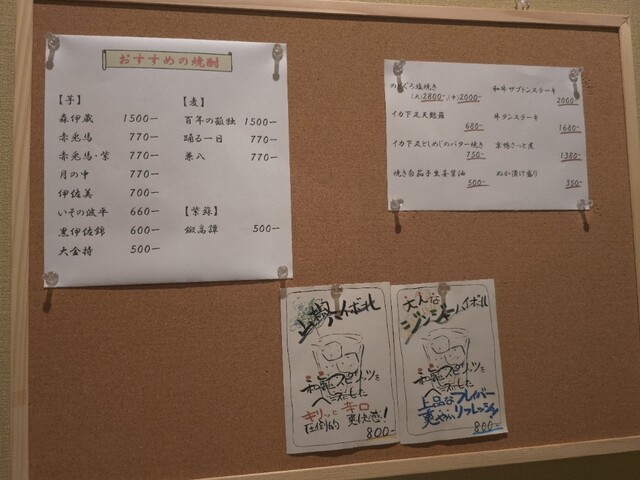 おすすめの焼酎
【芋】
森伊蔵 1500―
赤兎馬 770―
赤兎馬・紫 770―
月の中 770―
伊佐美 700―
いその波平 660―
黒伊佐錦 600―
大金持 500―
【麦】
百年の孤独 1500―
踊る一日 770―
兼八 770―
【紫蘇】
鍛高譚 500―
のどぐろ塩焼き
(大)2800-、(中)2000-
イカ下足天麩羅
680-
イカ下足としめじのバター焼き
750-
焼き白茄子生姜醤油
500-
和牛ザブトンステーキ
2000-
牛タンステーキ
1680-
京鴨さっと煮
1380-
ぬか漬け盛り
350-
山椒ハイボール
和風スピリッツを
ベースにした
キリッと辛口
圧倒的爽快感!
800-
大人な
ジンジャーハイボール
和風スピリッツを
ベースにした
上品なフレイバー
爽やかリフレッシュ!
800-